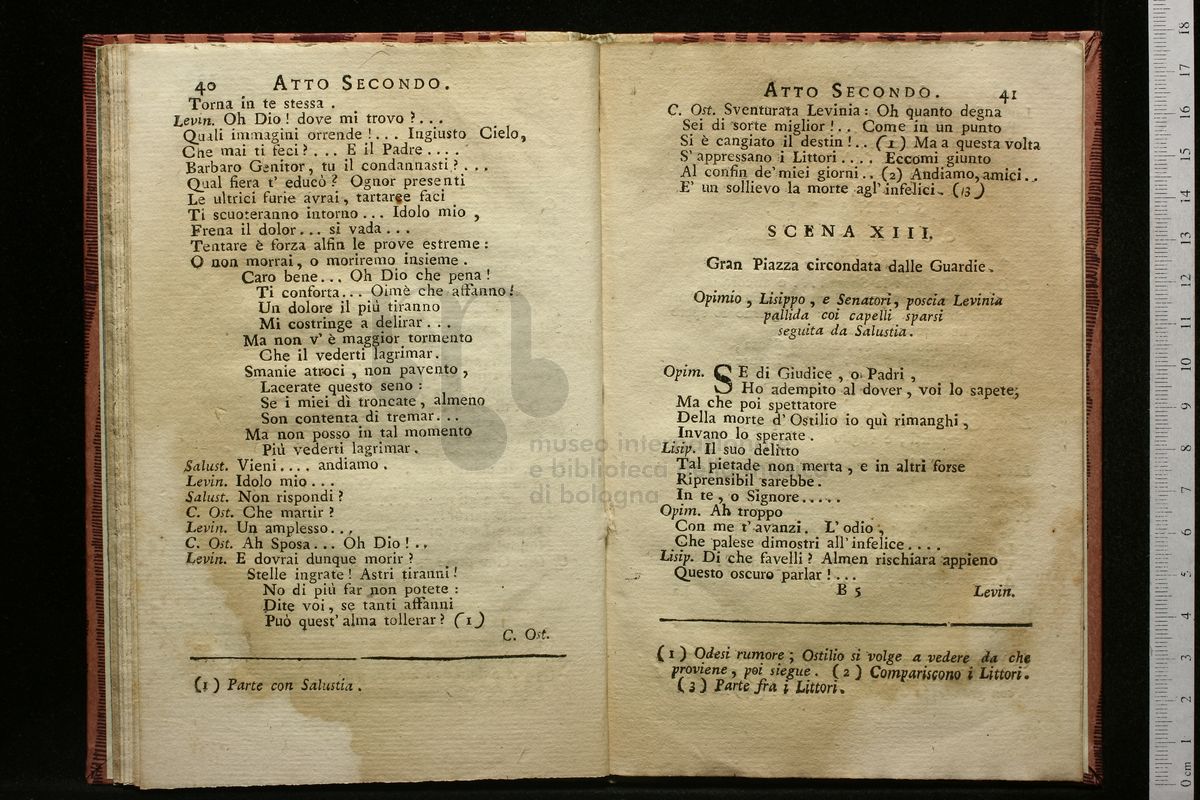 40 ATTO SECONDO.
Torna in te stessa .
Levin. Oh Dio ! dove mi trovo ?...
Quali immagini orrende !... Ingiusto Cielo,
Che mai ti feci ? ... E il Padre ....
Barbaro Genitor, tu il condannasti ? ...
Qual fiera t' educò ? Ognor presenti
Le ultrici furie avrai, tartaree faci
Ti scuoteranno intorno ... Idolo mio ,
Frena il dolor ... si vada ...
Tentare è forza alfin le prove estreme :
O non morrai, o moriremo insieme .
Caro bene... Oh Dio che pena !
Ti conforta... Oimè che affanno !
Un dolore il più tiranno
Mi costringe a delirar ...
Ma non v' è maggior tormento
Che il vederti lagrimar.
Smanie atroci , non pavento ,
Lacerate questo seno :
Se i miei dì troncate , almeno
Son contenta di tremar...
Ma non posso in tal momento
Più vederti lagrimar .
Salust. Vieni .... andiamo .
Levin. Idolo mio ...
Salust. Non rispondi ?
C. Ost. Che martir ?
Levin. Un amplesso...
C. Ost. Ah Sposa ... Oh Dio ! ..
Levin. E dovrai dunque morir ?
Stelle ingrate ! Astri tiranni !
No di più far non potete :
Dite voi , se tanti affanni
Può quest' alma tollerar ? (1)
C. Ost.
(1) Parte con Salustia .
ATTO SECONDO. 41
C. Ost. Sventurata Levinia : Oh quanto degna
Sei di sorte miglior !.. Come in un punto
Si è cangiato il destin !.. (1) Ma a questa volta
S' appressano i Littori .... Eccomi giunto
Al confin de' miei giorni .. (2) Andiamo, amici ..
E' un sollievo la morte agl' infelici. (3)
SCENA XIII.
Gran Piazza circondata dalle Guardie.
Opimio , Lisippo , e Senatori, poscia Levinia
pallida coi capelli sparsi
seguita da Salustia .
Opim. SE di Giudice , o Padri ,
Ho adempito al dover , voi lo sapete;
Ma che poi spettatore
Della morte d' Ostilio io quì rimanghi ,
Invano lo sperate .
Lisip. Il suo delitto
Tal pietade non merta , e in altri forse
Riprensibil sarebbe .
In te , o Signore .....
Opim. Ah troppo
Con me t' avanzi. L' odio ,
Che palese dimostri all' infelice ....
Lisip. Di che favelli ? Almen rischiara appieno
Questo oscuro parlar !...
B 5 Levin.
(1) Odesi rumore ; Ostilio si volge a vedere da che
proviene , poi siegue . (2) Compariscono i Littori .
(3) Parte fra i Littori .
museo
e biblioteca
di bologna
0 cm 1 2 3 4 5 6 7 8 9 10 11 12 13 14 15 16 17 18